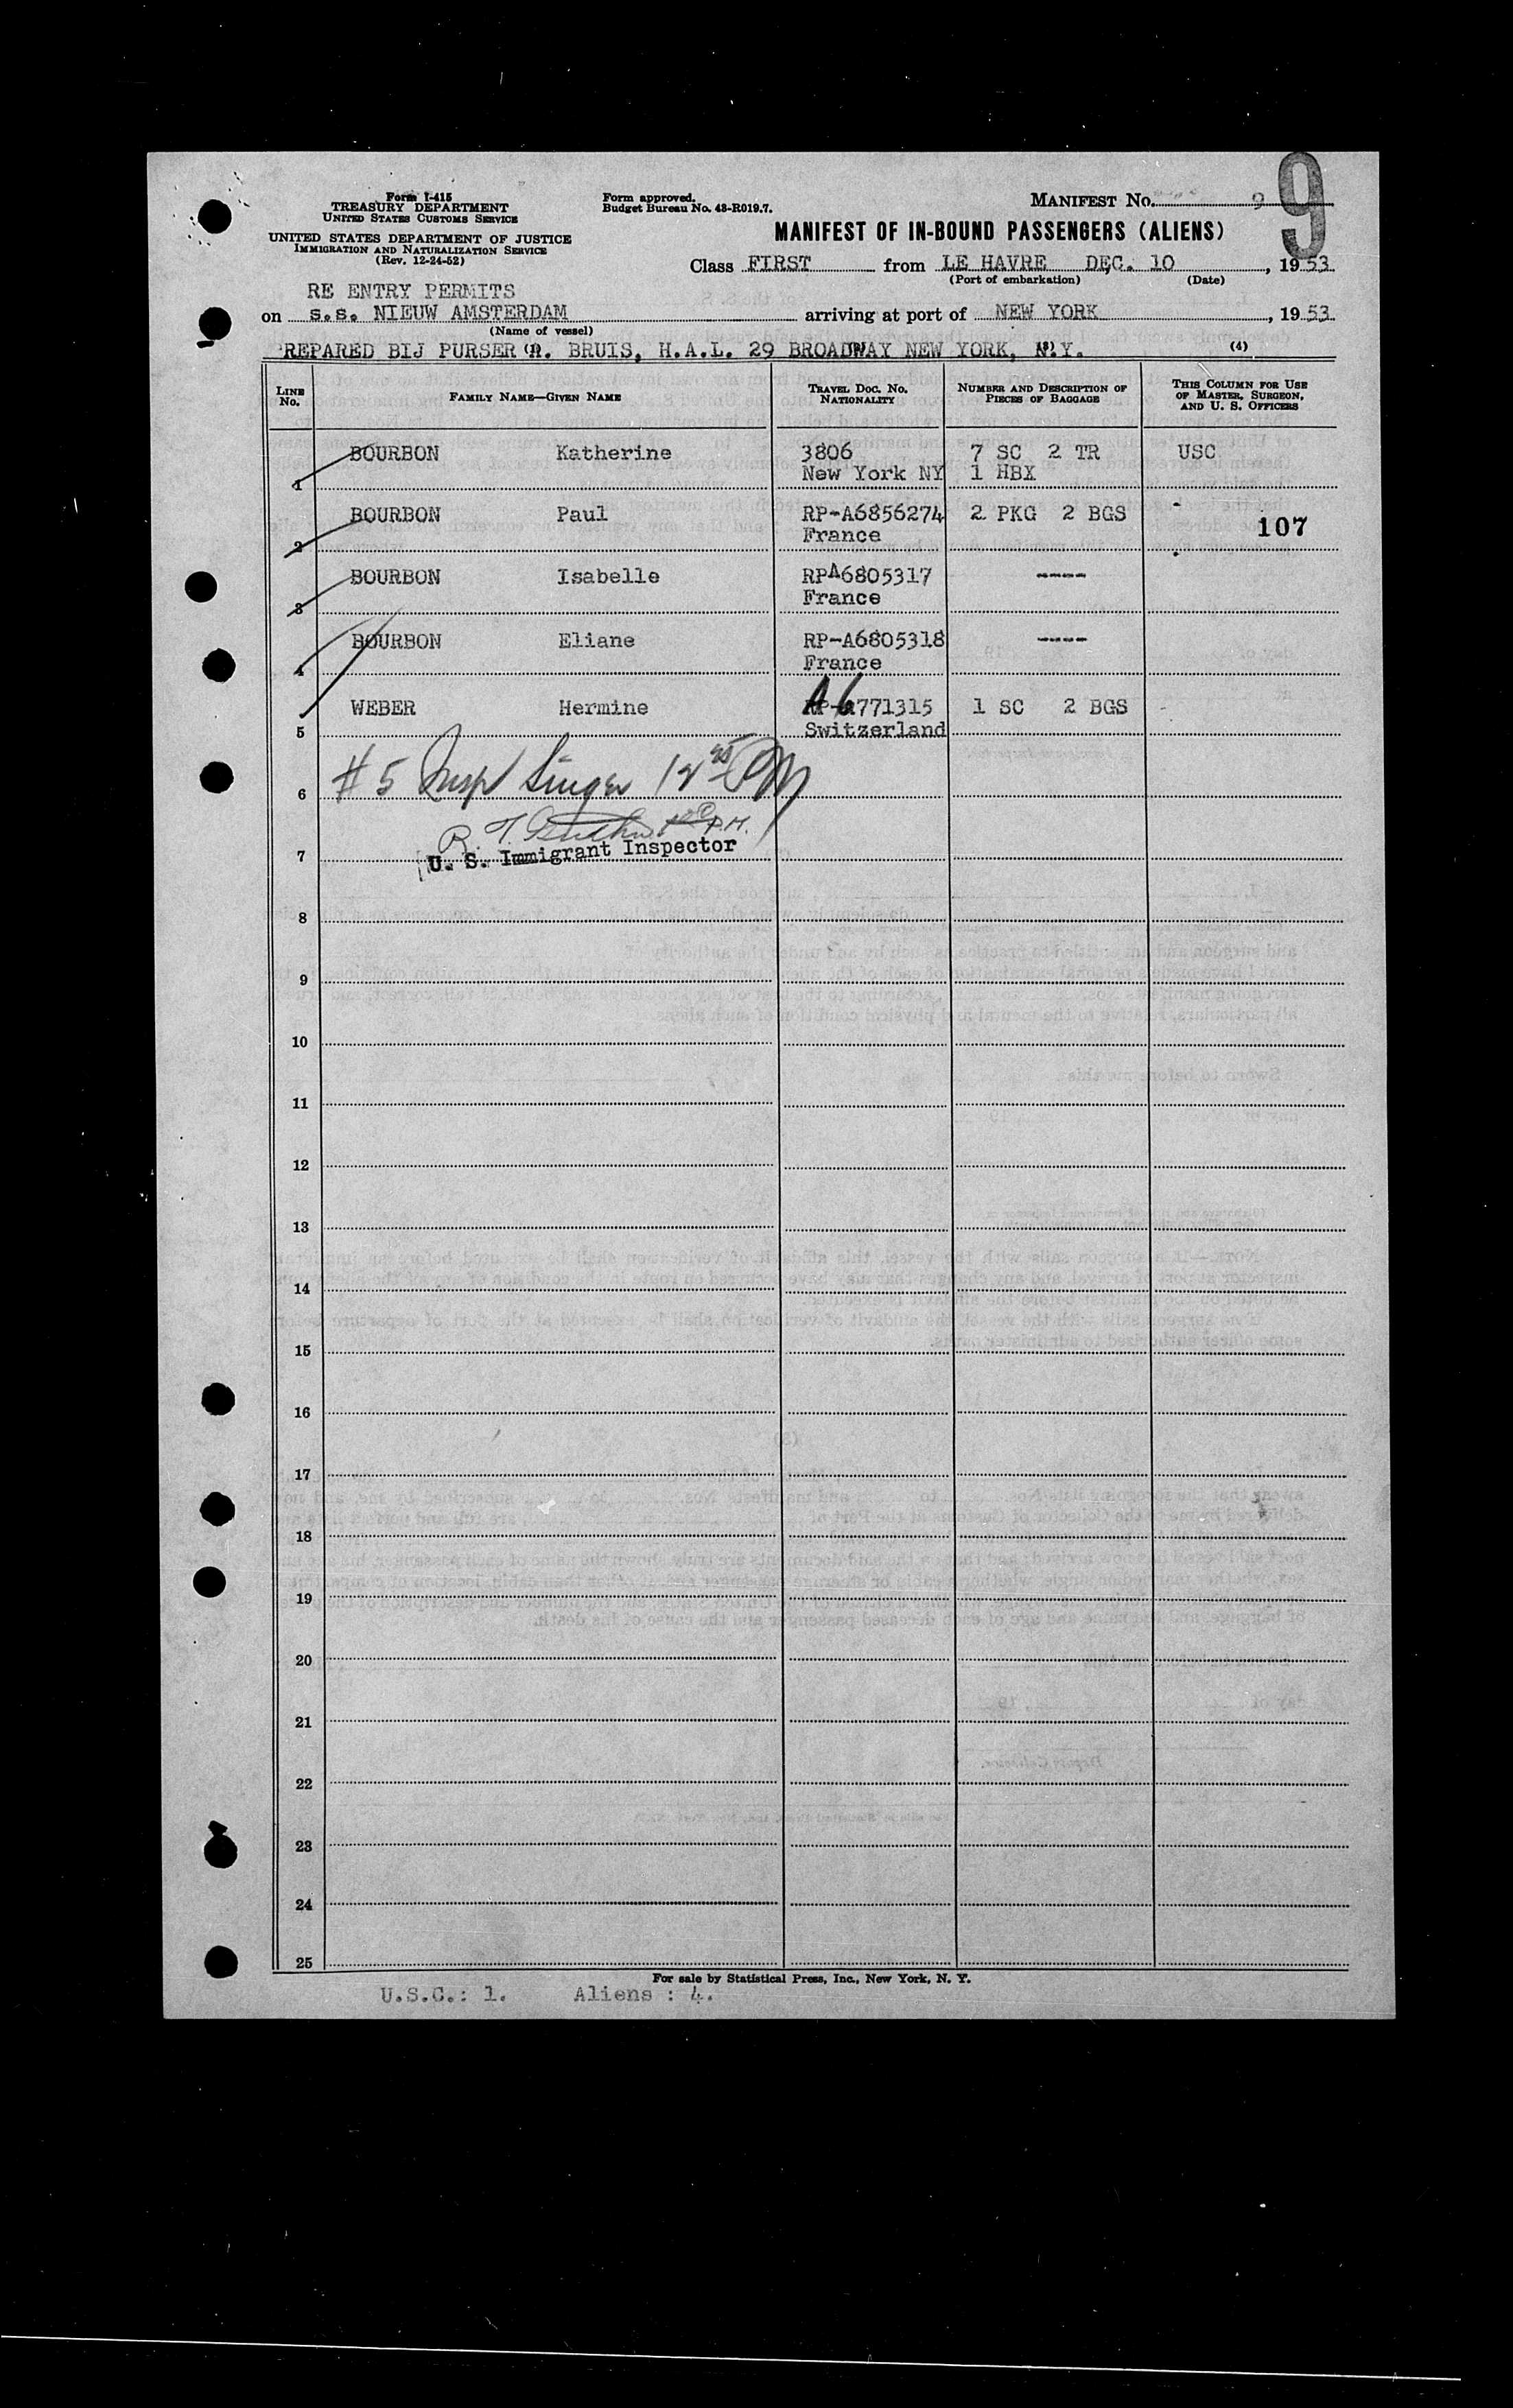 9
Form I-415
TREASURY DEPARTMENT
UNITED STATES CUSTOMS SERVICE
UNITED STATES DEPARTMENT OF JUSTICE
IMMIGRATION AND NATURALIZATION SERVICE
(Rev. 12-24-52)
Form approved.
Budget Bureau No. 43-R019.7.
MANIFEST No. 9
MANIFEST OF IN-BOUND PASSENGERS (ALIENS)
Class FIRST from LE HAVRE DEC. 10, 1953
(Port of embarkation) (Date)
RE ENTRY PERMITS
on s.s. NIEUW AMSTERDAM arriving at port of NEW YORK, 1953
(Name of vessel)
REPARED BIJ PURSER BRUIS, H.A.L. 29 BROADWAY NEW YORK, N.Y.
(4)
LINE No. FAMILY NAME—GIVEN NAME TRAVEL DOC. NO. NATIONALITY NUMBER AND DESCRIPTION OF PIECES OF BAGGAGE THIS COLUMN FOR USE OF MASTER, SURGEON, AND U. S. OFFICERS
BOURBON Katherine 3806 7 SC 2 TR USC
1 New York NY 1 HBX
BOURBON Paul RP-A6856274 2 PKG 2 BGS
2 France 107
BOURBON Isabelle RPA6805317 ----
3 France
BOURBON Eliane RP-A6805318 ----
4 France
WEBER Hermine A6 771315 1 SC 2 BGS -
5 Switzerland
6 #5 Insp Singer 12 25 PM
R. T. P.M.
7 U. S. Immigrant Inspector
8
9
10
11
12
13
14
15
16
17
18
19
20
21
22
23
24
25
For sale by Statistical Press, Inc., New York, N. Y.
U.S.C.: 1. Aliens : 4.